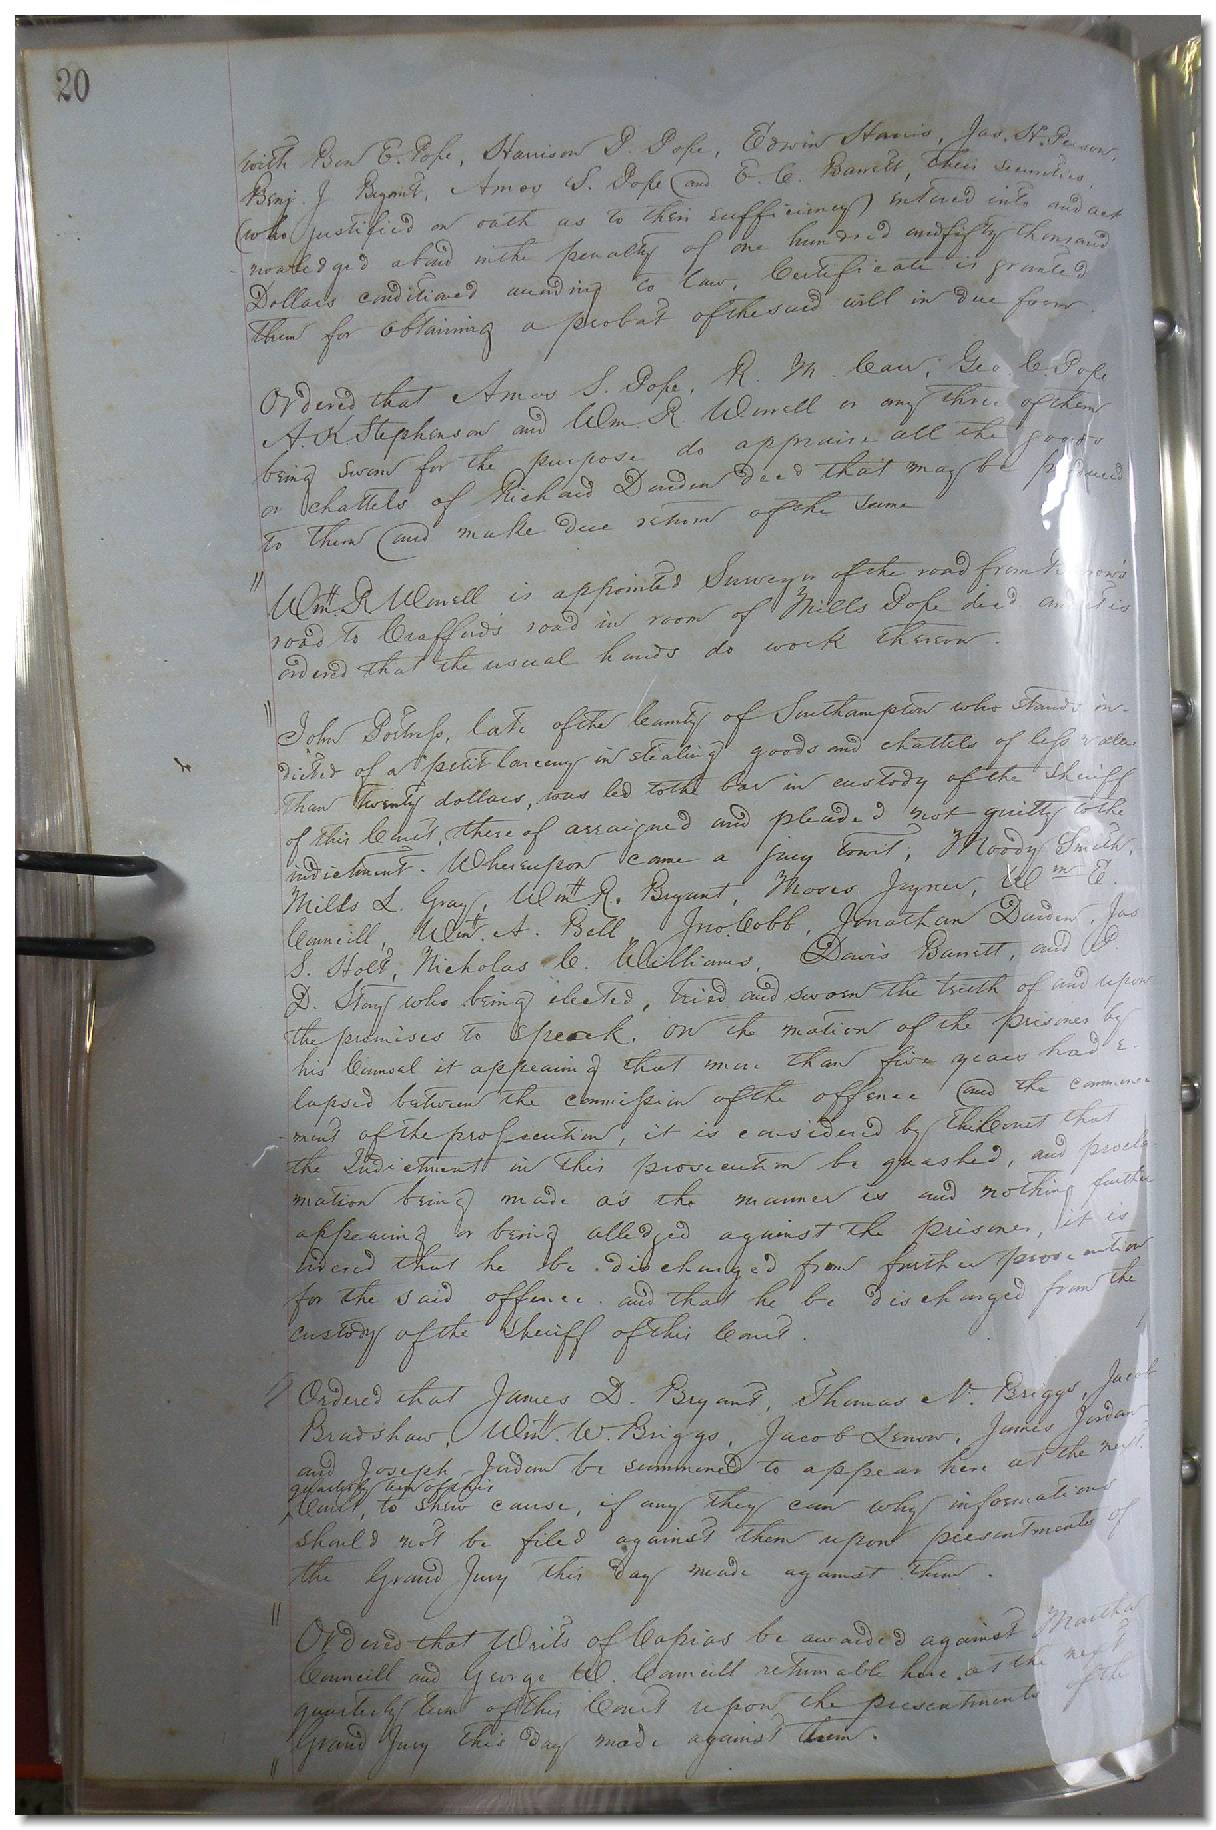 20
with Ben E. Pope, Harrison P. Pope, Edwin Harris, Jas. H. Person,
Benj. J Bryant, Amos S. Pope and E. C. Barrett, their securities,
(who justified on oath as to their sufficiency) entered into and ack
nowledged abond in the penalty of one hundred and fifty thousand
Dollars conditioned according to law, Certificate is granted
them for obtaining a probat of the said will in due form.
Ordered that Amos S. Pope, R. M. Caw, Geo C. Pope
A. K Stephenson and Wm R Worrell or any three of them
being sworn for the purpose do appraise all the goods
or chattels of Richard Darden decd that may be produced
to them and make due return of the same
" Wm. R Worrell is appointed Surveyor of the road from
road to Crafford's road in room of Mills Pope decd and it is
ordered that the usual hands do work thereon.
" John Portress, late of the County of Southampton who stands in-
dicted of a petit larceny in stealing goods and chattels of less value
than twenty dollars, was led to the bar in custody of the Sheriff
of this Court, thereof arraigned and pleaded not guilty to the
indictment. Whereupon came a jury towit; Moody Smith,
Mills L. Gray, Wm. R. Bryant, Moses Joyner, Wm E.
Councill, Wm. A. Bell, Jno. Cobb, Jonathan Darden, Jas
S. Holt, Nicholas C. Williams, Davis Barrett, and C
D. Story who being elected, tried and sworn the truth of and upon
the premises to speak. On the motion of the prisoner by
his Counsel it appearing that more than five years had e-
lapsed between the commission of the offence and the commence
ment of the prosecution, it is considered by the Court that
the Indictment in this prosecution be quashed, and procla-
mation being made as the manner is and nothing further
appearing or being alledged against the prisoner, it is
ordered that he be discharged from further prosecution
for the said offence. and that he be discharged from the
custody of the Sheriff of this Court.
" Ordered that James D. Bryant, Thomas N. Briggs, Jacob
Bradshaw, Wm. W. Briggs, Jacob Lenow, James Jordan
and Joseph Jordan be summoned to appear here at the next
quarterly term of this
Court, to shew cause, if any they can why informations
should not be filed against them upon presentments of
the Grand Jury this day made against them.
" Ordered that Writs of Capias be awarded against Martha
Councill and George W. Councill returnable here at the next
quarterly term of this Court upon the presentments of the
Grand Jury this day made against them.
"